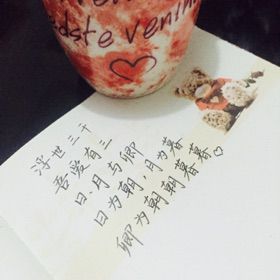 dste venin
浮世三千
吾爱有三
日、月与卿
日为朝，月为暮
卿为朝朝暮暮♡